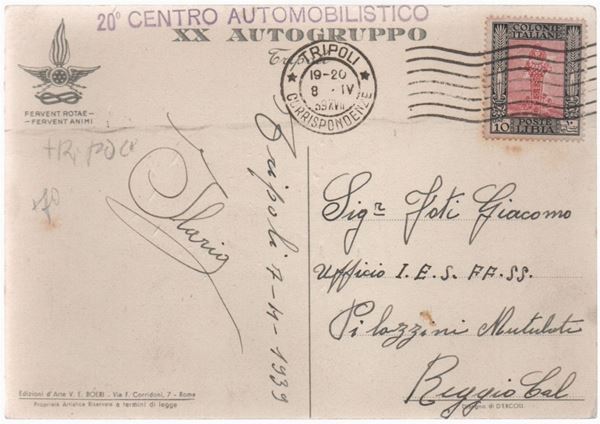 20° CENTRO AUTOMOBILISTICO
XX AUTOGRUPPO
Tripoli
FERVENT ROTAE -
- FERVENT ANIMI
TRIPOLI
19-20
8 · IV
39 XVII
CORRISPONDENZE
COLONIE
ITALIANE
10 POSTE
LIBIA
TRIPOLI
Ilario
Tripoli 7-4-1939
Sigr Foti Giacomo
Ufficio I.E.S. FF.SS.
Palazzini Mutilati
Reggio Cal
Edizioni d'Arte V. E. BOERI - Via F. Corridoni, 7 - Roma
Proprietà Artistica Riservata a termini di legge
Disegno di D'ERCOLI